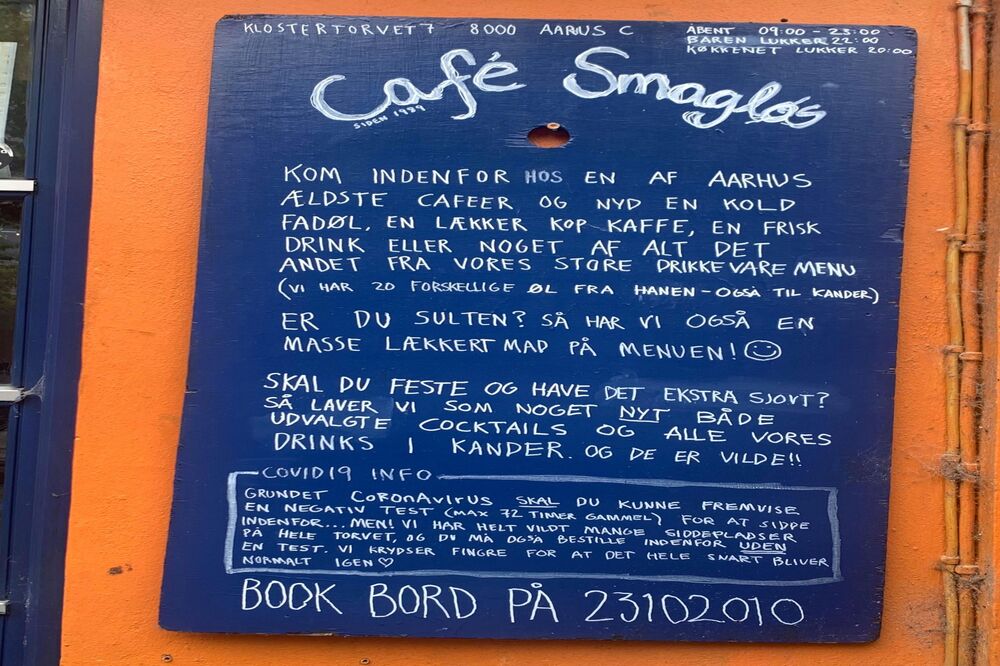 KLOSTERTORVET 7 8000 AARUS C
ÅBENT 09:00 - 23:00
BAREN LUKKER 22:00
KØKKENET LUKKER 20:00
Café Smagløs
SIDEN 1989
KOM INDENFOR HOS EN AF AARHUS
ÆLDSTE CAFEER OG NYD EN KOLD
FADØL, EN LÆKKER KOP KAFFE, EN FRISK
DRINK ELLER NOGET AF ALT DET
ANDET FRA VORES STORE DRIKKEVARE MENU
(VI HAR 20 FORSKELLIGE ØL FRA HANEN - OGSÅ TIL KANDER)
ER DU SULTEN? SÅ HAR VI OGSÅ EN
MASSE LÆKKERT MAD PÅ MENUEN! ☺
SKAL DU FESTE OG HAVE DET EKSTRA SJOVT?
SÅ LAVER VI SOM NOGET NYT BÅDE
UDVALGTE COCKTAILS OG ALLE VORES
DRINKS I KANDER. OG DE ER VILDE!!
COVID19 INFO
GRUNDET CORONAVIRUS SKAL DU KUNNE FREMVISE
EN NEGATIV TEST (MAX 72 TIMER GAMMEL) FOR AT SIDDE
INDENFOR... MEN! VI HAR HELT VILDT MANGE SIDDEPLADSER
PÅ HELE TORVET, OG DU MÅ OGSÅ BESTILLE INDENFOR UDEN
EN TEST. VI KRYDSER FINGRE FOR AT DET HELE SNART BLIVER
NORMALT IGEN ♡
BOOK BORD PÅ 23102010